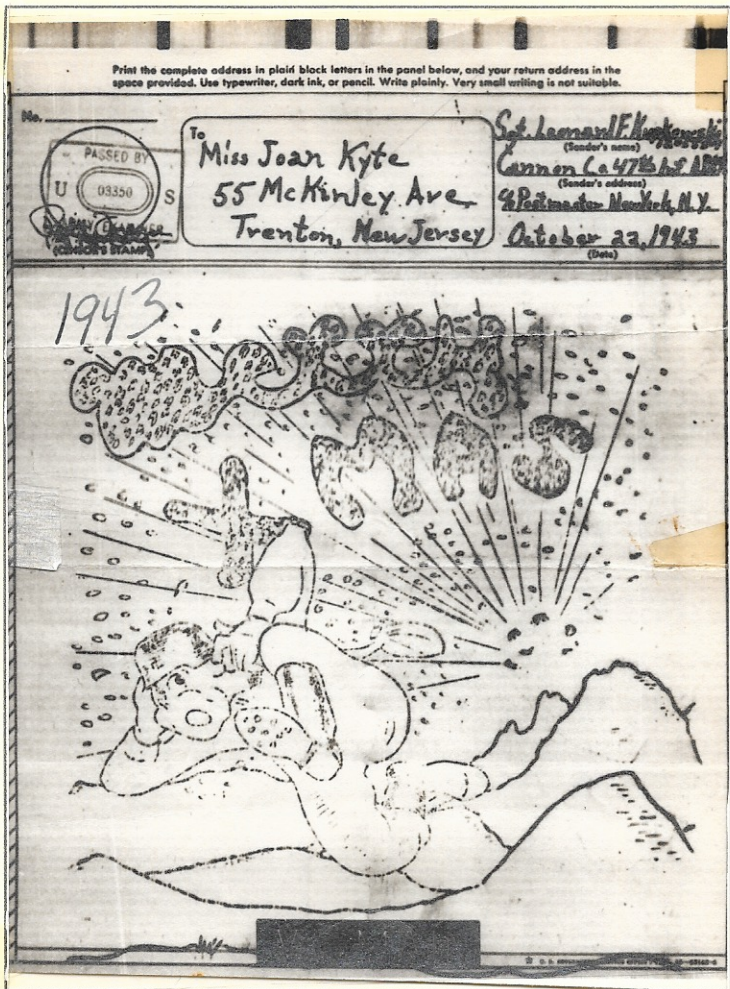 Print the complete address in plain block letters in the panel below, and your return address in the
space provided. Use typewriter, dark ink, or pencil. Write plainly. Very small writing is not suitable.
No.
PASSED BY
U 03350 S
(CENSOR'S STAMP)
To
Miss Joan Kyte
55 McKinley Ave.
Trenton, New Jersey
Sgt. Leonard F.
(Sender's name)
Cannon Co 47th Inf
(Sender's address)
% Postmaster New York, N.Y.
October 22, 1943
(Date)
1943
Merry
XMAS